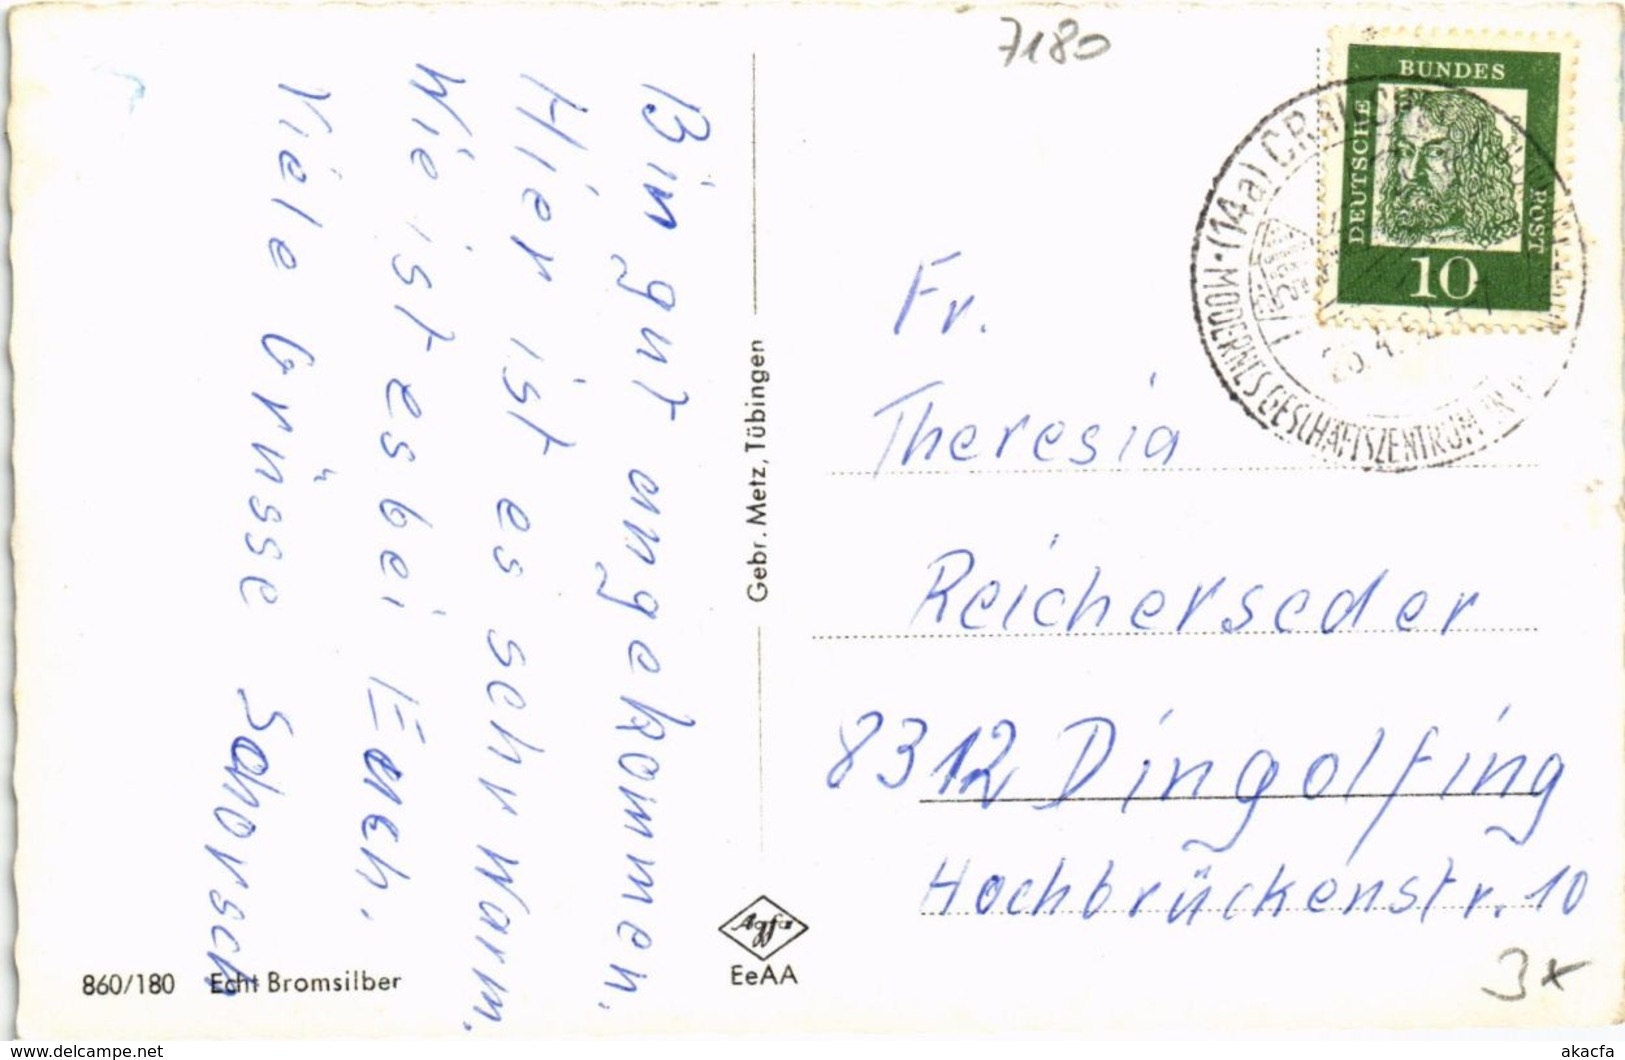 7180
BUNDES
DEUTSCHE
POST
10
(14a) CRAILSHEIM
MODERNES GESCHÄFTSZENTRUM IN
Bin gut engekommen.
Hier ist es sehr warm.
Wie ist es bei Euch.
Viele Grüsse Schorsch
Gebr. Metz, Tübingen
Fr.
Theresia
Reicherseder
8312 Dingolfing
Hochbrückenstr. 10
Agfa
EeAA
860/180 Echt Bromsilber
3x
www.delcampe.net
akacfa